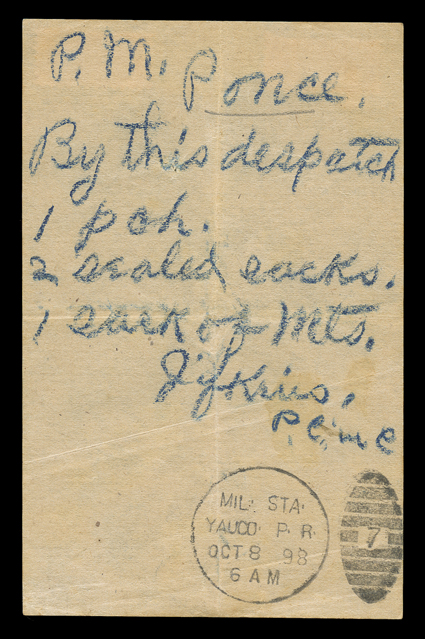 P. M. Ponce.
By this despatch
1 pch.
2 sealed sacks.
1 sack of Mts.
P. C. m C
MIL. STA.
YAUCO P. R.
OCT 8 98
6 AM
7